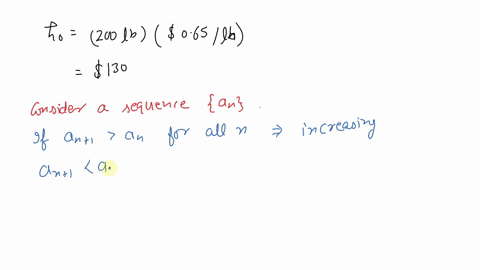 h₀ = (200 lb) ($0.65/lb)
= $130
Consider a sequence {aₙ}.
If aₙ₊₁ > aₙ for all n ⇒ increasing
aₙ₊₁ < a